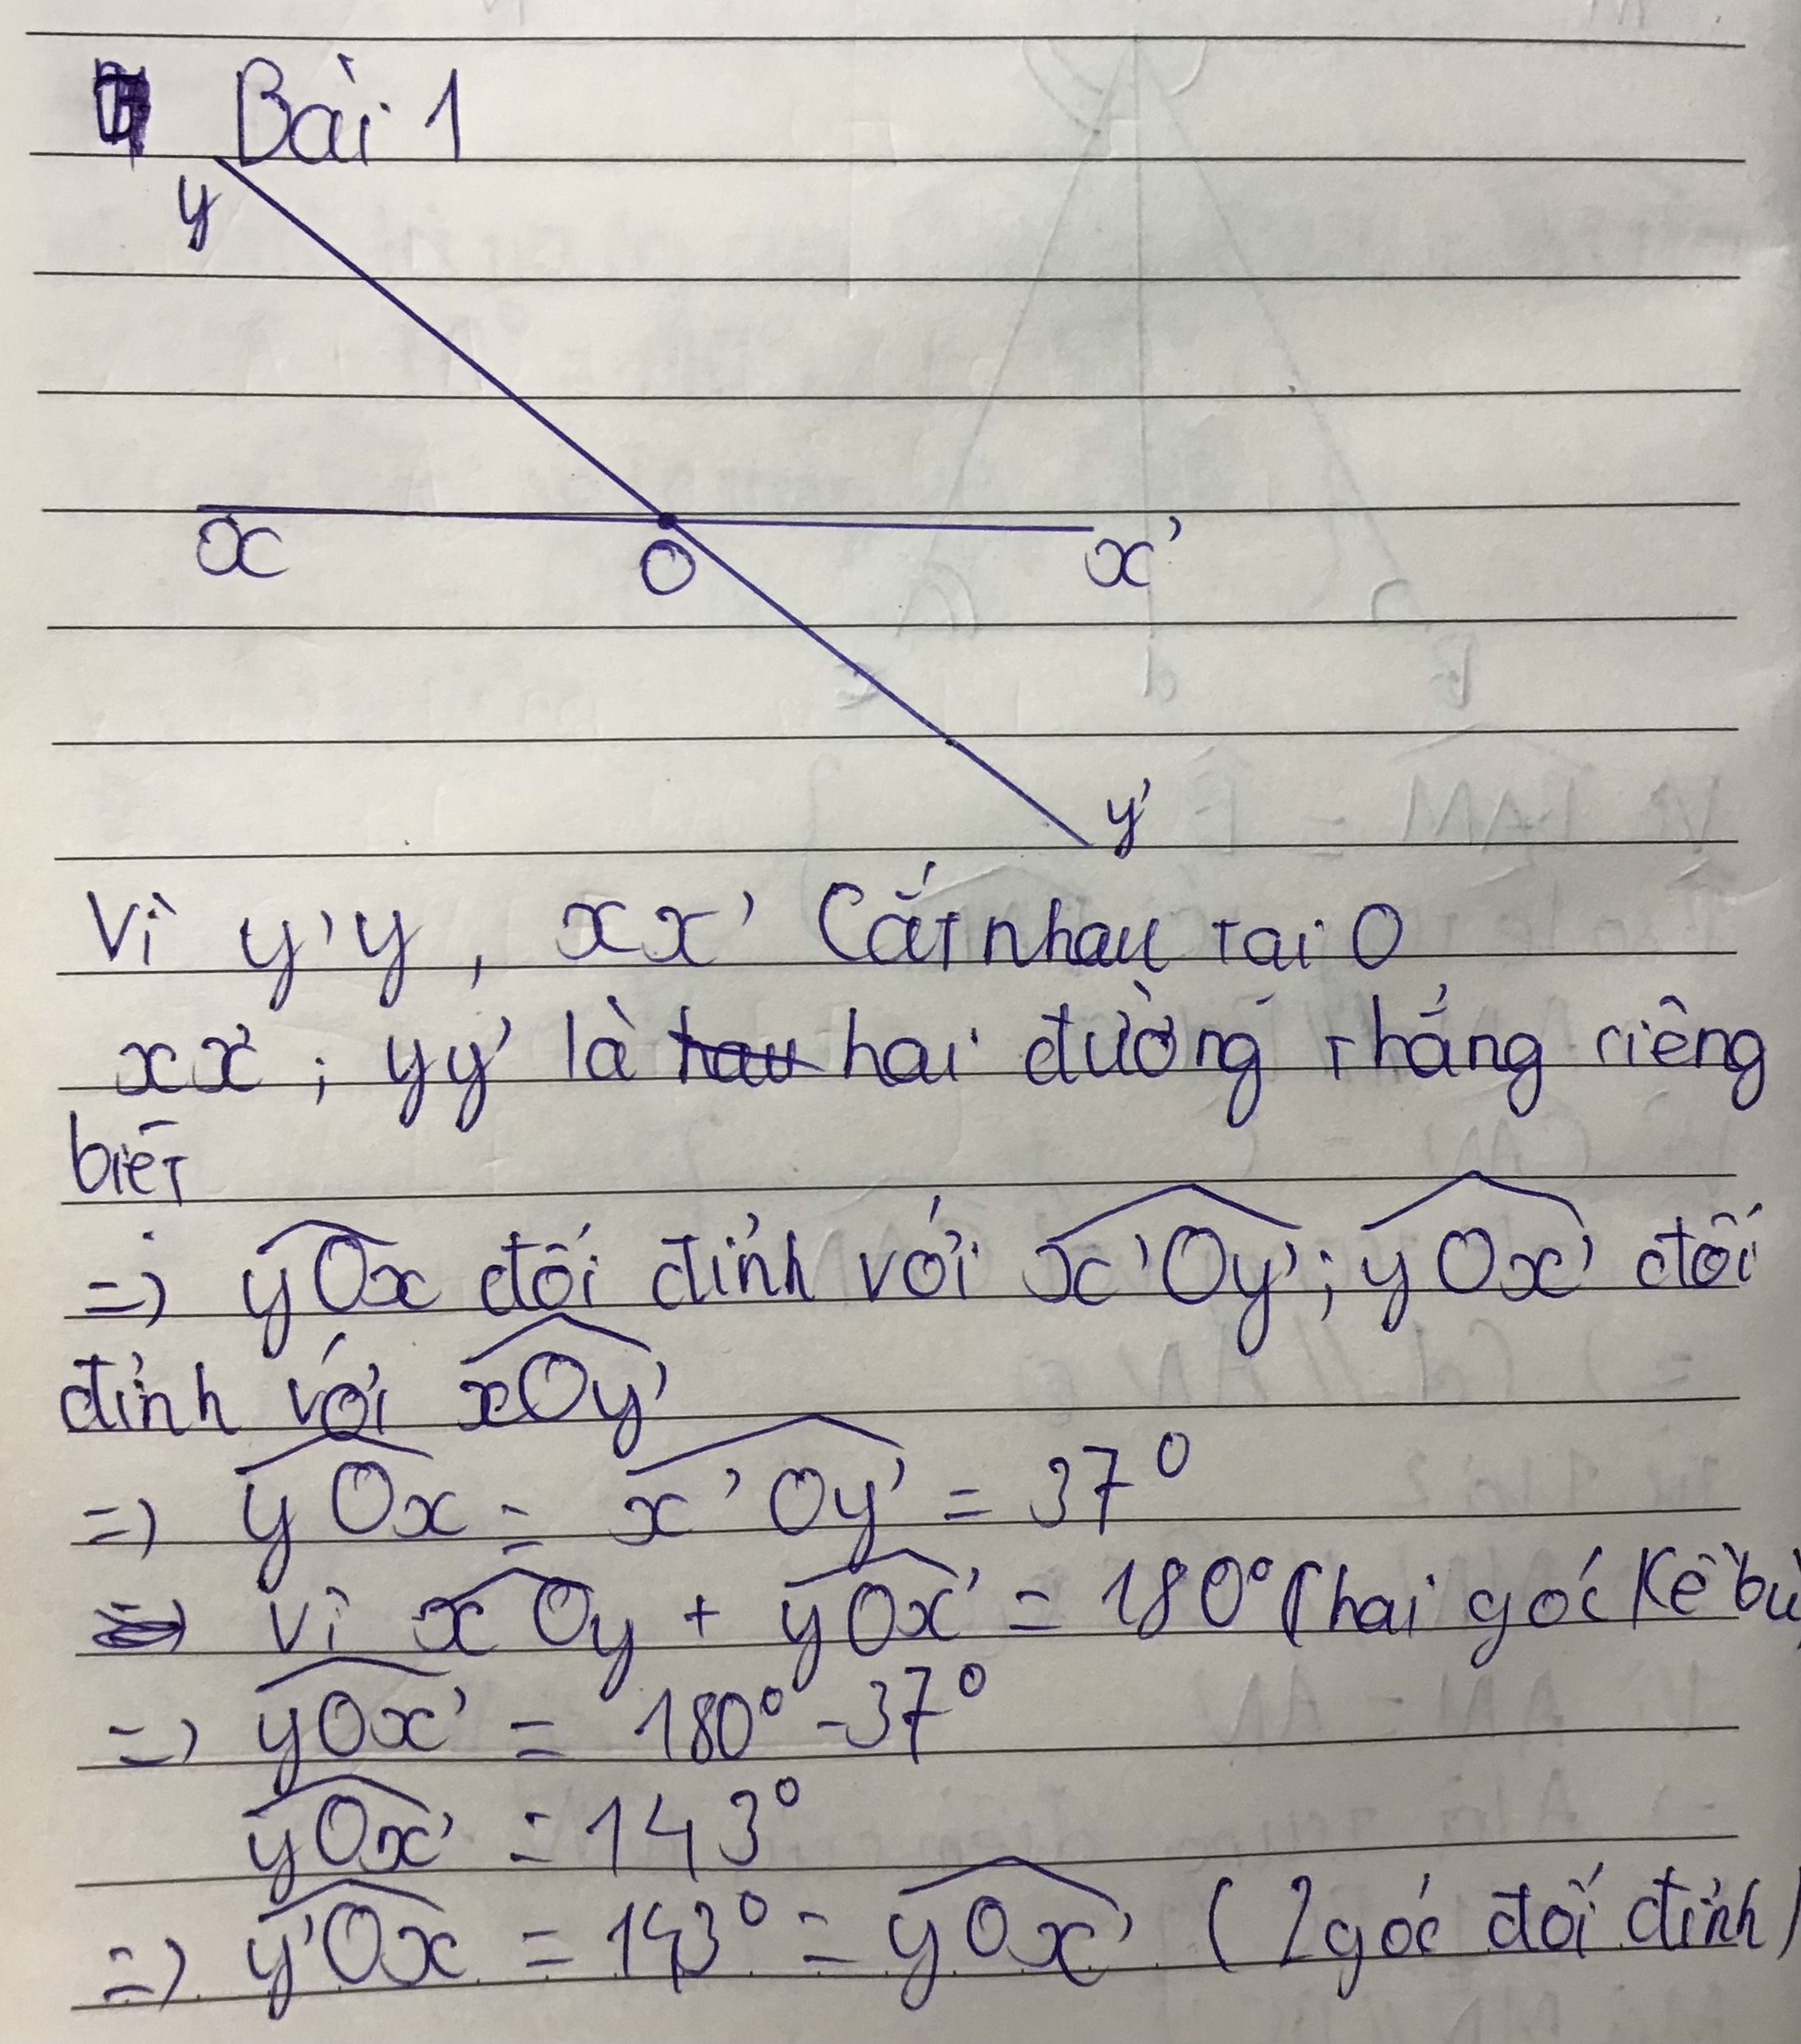 Bài 1
y
x
O
x'
y'
Vì y'y, xx' Cắt nhau tại O
xx' ; yy' là hai đường thẳng riêng
biêt
=> yOx đối đỉnh với x'Oy'; yOx' đối
đỉnh với xOy'
=> yOx = x'Oy' = 37°
Vì xOy + yOx' = 180° (hai góc kề bù)
=> yOx' = 180° - 37°
yOx' = 143°
=> y'Ox = 143° = yOx' (2 góc đối đỉnh)